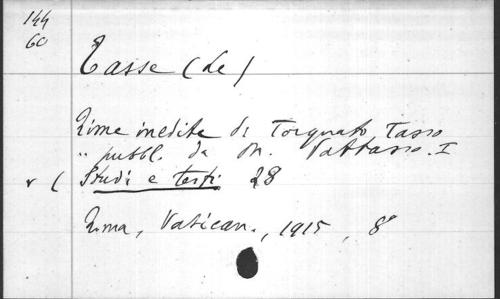 144
60
Tasse (Le)
Rime inedite di Torquato Tasso
" pubbl. da M. Vattasso. I
( Studi e testi 28
Roma, Vatican., 1915, 8°